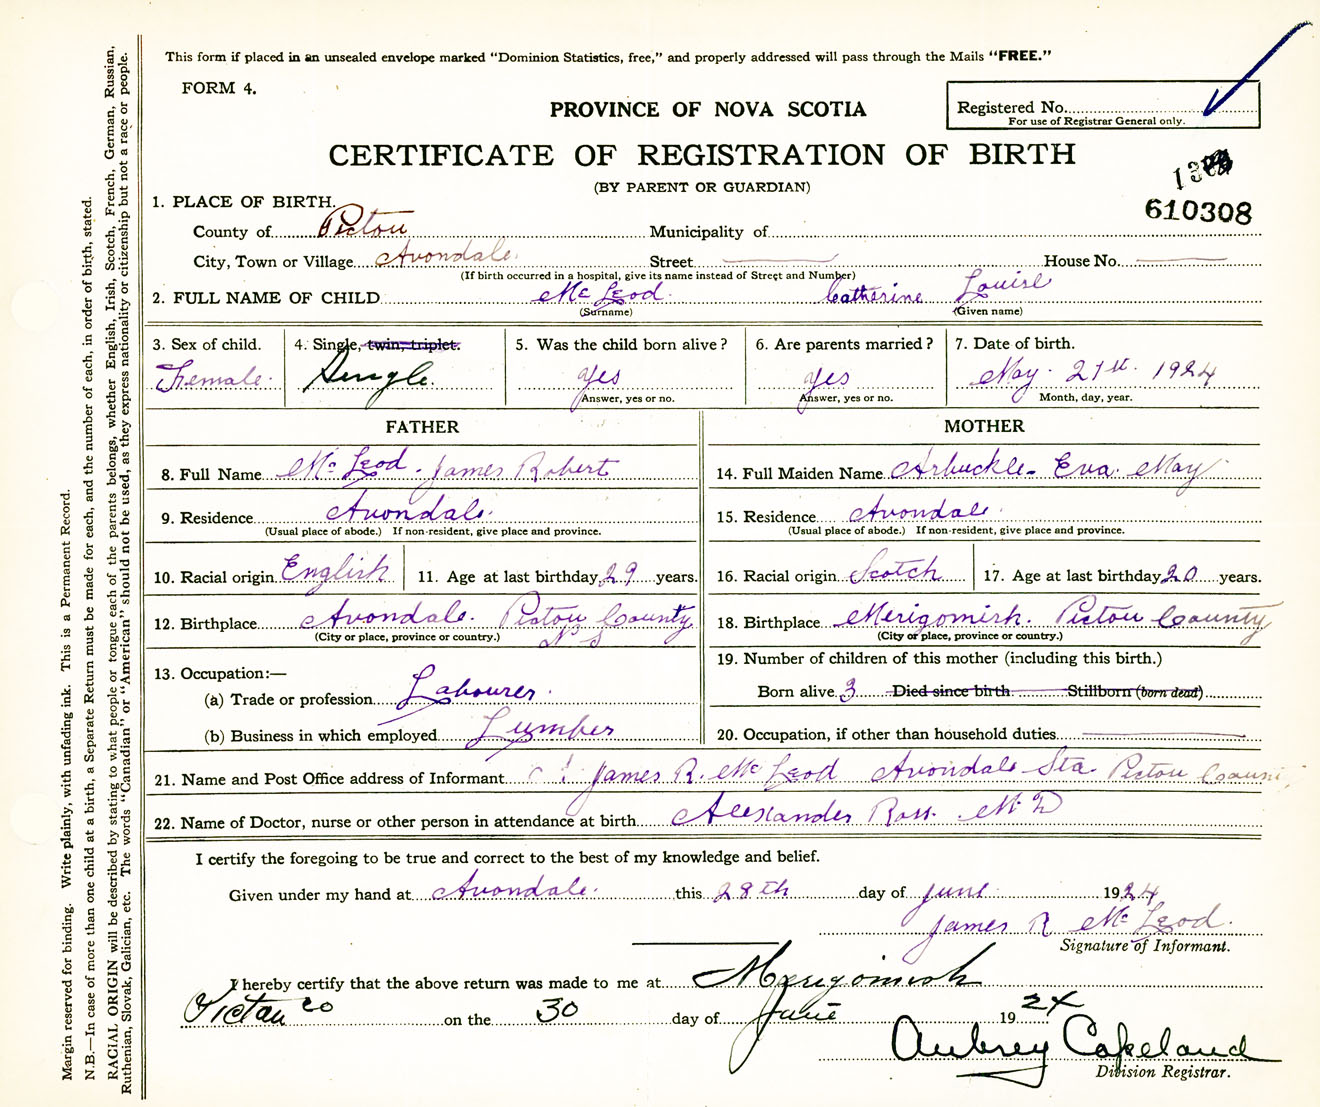 This form if placed in an unsealed envelope marked "Dominion Statistics, free," and properly addressed will pass through the Mails "FREE."
FORM 4.
Registered No.
For use of Registrar General only.
PROVINCE OF NOVA SCOTIA
CERTIFICATE OF REGISTRATION OF BIRTH
(BY PARENT OR GUARDIAN)
610308
1. PLACE OF BIRTH.
County of Pictou Municipality of
City, Town or Village Avondale Street House No.
(If birth occurred in a hospital, give its name instead of Street and Number)
2. FULL NAME OF CHILD McLeod Catherine Louise
(Surname) (Given name)
3. Sex of child. 4. Single, twin, triplet. 5. Was the child born alive? 6. Are parents married? 7. Date of birth.
Female. Single. Yes Yes May. 21st. 1924
Answer, yes or no. Answer, yes or no. Month, day, year.
FATHER MOTHER
8. Full Name McLeod. James Robert 14. Full Maiden Name Arbuckle- Eva May
9. Residence Avondale. 15. Residence Avondale.
(Usual place of abode.) If non-resident, give place and province. (Usual place of abode.) If non-resident, give place and province.
10. Racial origin English 11. Age at last birthday 29 years. 16. Racial origin Scotch 17. Age at last birthday 20 years.
12. Birthplace Avondale. Pictou County 18. Birthplace Merigomish. Pictou County
(City or place, province or country.) N S (City or place, province or country.)
13. Occupation:— 19. Number of children of this mother (including this birth.)
(a) Trade or profession Labourer. Born alive 3 Died since birth Stillborn (born dead)
(b) Business in which employed Lumber 20. Occupation, if other than household duties
21. Name and Post Office address of Informant James R. McLeod Avondale Sta Pictou County
22. Name of Doctor, nurse or other person in attendance at birth Alexander Ross. M D
I certify the foregoing to be true and correct to the best of my knowledge and belief.
Given under my hand at Avondale. this 28th day of June 1924
James R McLeod.
Signature of Informant.
I hereby certify that the above return was made to me at Merigomish
Pictou Co on the 30 day of June 1924
Aubrey Copeland
Division Registrar.
Margin reserved for binding. Write plainly, with unfading ink. This is a Permanent Record.
N.B.—In case of more than one child at a birth, a Separate Return must be made for each, and the number of each, in order of birth, stated.
RACIAL ORIGIN will be described by stating to what people or tongue each of the parents belongs, whether English, Irish, Scotch, French, German, Russian,
Ruthenian, Slovak, Galician, etc. The words "Canadian" or "American" should not be used, as they express nationality or citizenship but not a race or people.